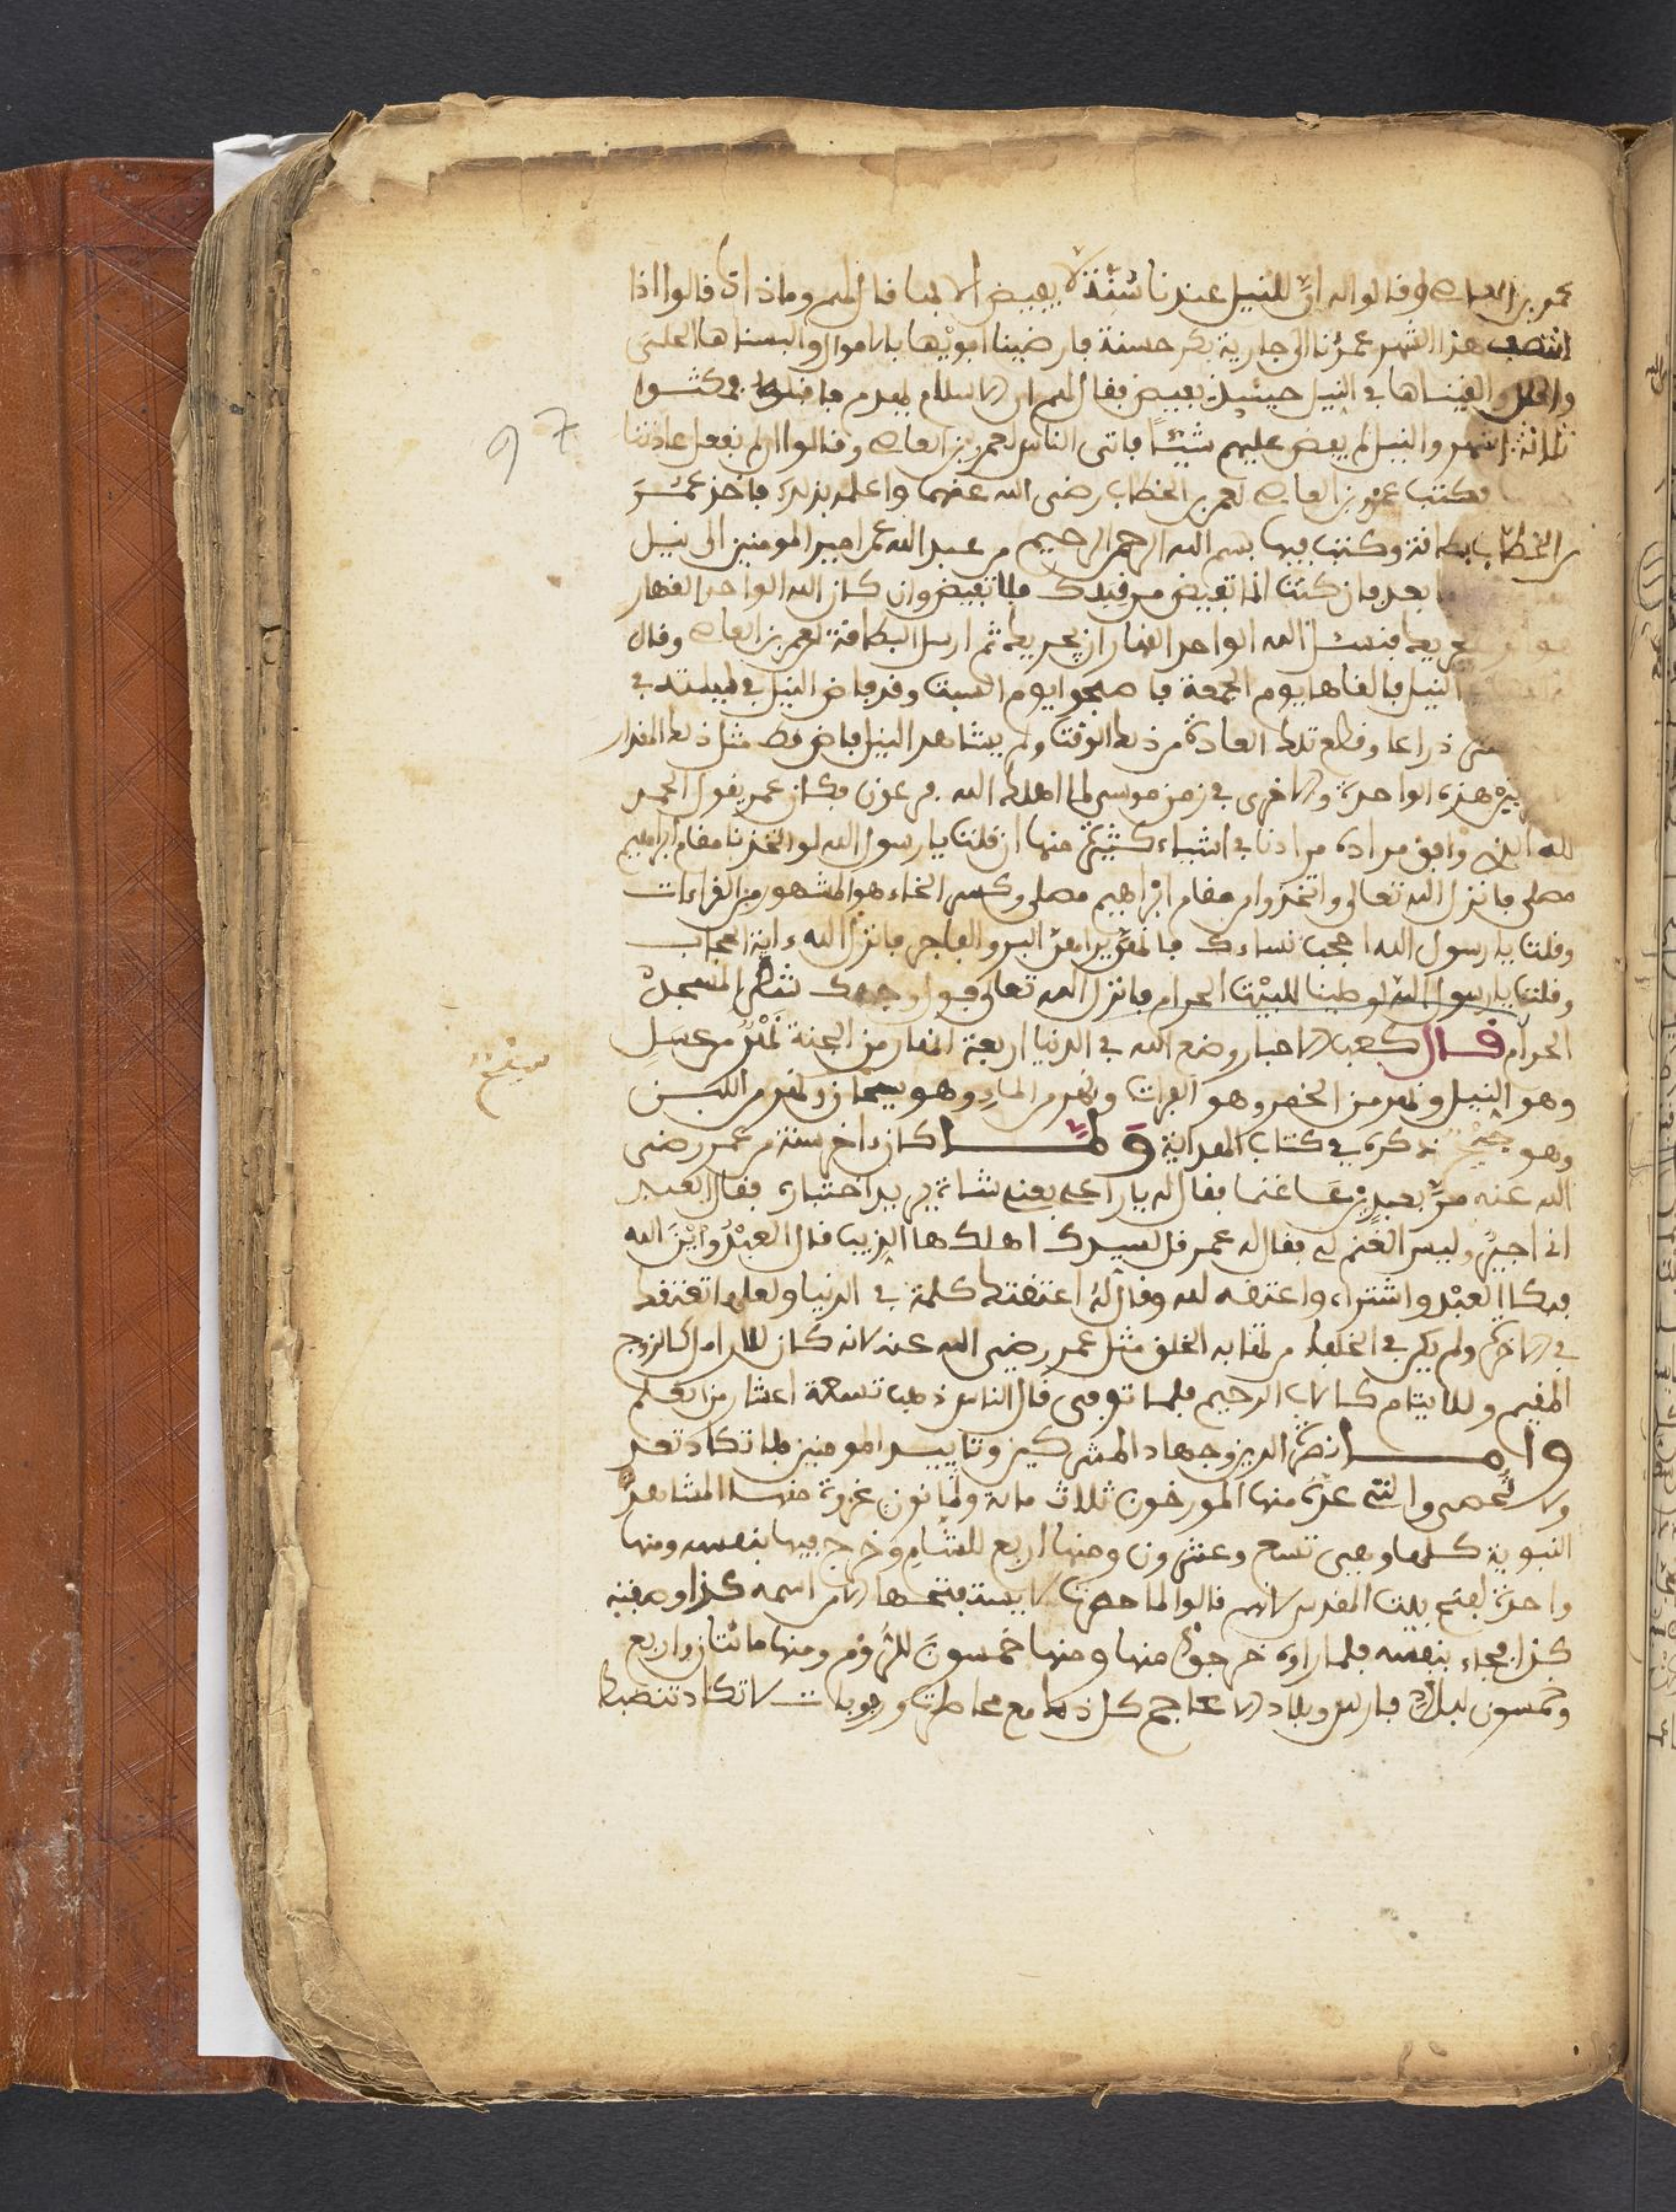 عمرو بن العاص وقالوا له ان للنيل عندنا سنة لا يفيض الا بها فقال لهم وما ذاك قالوا اذا
انتصف هذا الشهر عمدنا الى جارية بكر حسنة فارضينا ابويها بالاموال والبسناها الحلى
والحلل والقيناها في النيل حينئذ يفيض فقال لهم ان الاسلام يهدم ما قبله فمكثوا
ثلاثة اشهر والنيل لم يفض عليهم شيئا فاتى الناس لعمرو بن العاص وقالوا ان لم نفعل عادتنا
فكتب عمرو بن العاص لعمر بن الخطاب رضى الله عنهما واعلمه بذلك فاخذ عمر
بن الخطاب بطاقة وكتب فيها بسم الله الرحمن الرحيم من عبد الله عمر امير المومنين الى نيل
بعد فان كنت انما تفيض من قبلك فلا تفيض وان كان الله الواحد القهار
يجريك فنسئل الله الواحد القهار ان يجريك ثم ارسل البطاقة لعمرو بن العاص وقال
النيل فالقاها يوم الجمعة فاصبحوا يوم السبت وقد فاض النيل في ليلته في
ذراعا وقطع تلك العادة من ذلك الوقت ولم يشاهد النيل فاض قط مثل ذلك المقدار
هذه الواحدة والاخرى في زمن موسى لما اهلك الله فرعون فكان عمر يقول الحمد
لله الذي وافق مراده مرادنا في اشياء كثيرة منها ان قلت يا رسول الله لو اتخذنا مقام ابراهيم
مصلى فانزل الله تعالى واتخذوا من مقام ابراهيم مصلى وكسر الخاء هو المشهور من القراءات
وقلت يا رسول الله احجب نساءك فانهن يراهن البر والفاجر فانزل الله ءاية الحجاب
وقلت يا رسول الله لو صلينا للبيت الحرام فانزل الله تعالى فول وجهك شطر المسجد
الحرام قال كعب الاحبار وضع الله في الدنيا اربعة انهار من الجنة نهر من عسل
وهو النيل ونهر من الخمر وهو الفرات ونهر من الماء وهو سيحان ونهر من اللبن
سيحان
وهو جيحون ذكره في كتاب الهداية ولما كان ءاخر سنة من عمر رضى
الله عنه مر بعبد يرعا غنما فقال له يا راعي بعني شاة يريد اختباره فقال العبد
انى اجير وليس الغنم لي فقال له عمر قل لسيدك اهلكها الذيب قال العبد واين الله
فبكا العبد واشتراه واعتقه لله وقال له اعتقتك كلمة في الدنيا ولعلها تعتقك
في الاخرة ولم يكن في الخلفاء من لقا به الخلق مثل عمر رضى الله عنه لانه كان للارامل كالزوج
المقيم وللايتام كالاب الرحيم فلما توفى قال الناس ذهب تسعة اعشار من العلم
واما نصرة الدين وجهاد المشركين وتاييد المومنين فلا تكاد تعد
ولا تحصى والتي عده منها المورخون ثلاث ماية وثمانون غزوة منها المشاهد
النبوية كلها وهي تسع وعشرون ومنها اربع للشام وخرج فيها بنفسه ومنها
واحدة لفتح بيت المقدس لانهم قالوا لما حصرت لا يفتحها الا من اسمه كذا وصفته
كذا فجاء بنفسه فلما راوه خرجوا منها ومنها خمسون للروم ومنها مائتان واربع
وخمسون لبلاد فارس وبلاد الاعاجم كل ذلك مع مخاطرة وصعوبات لا تكاد تنضبط